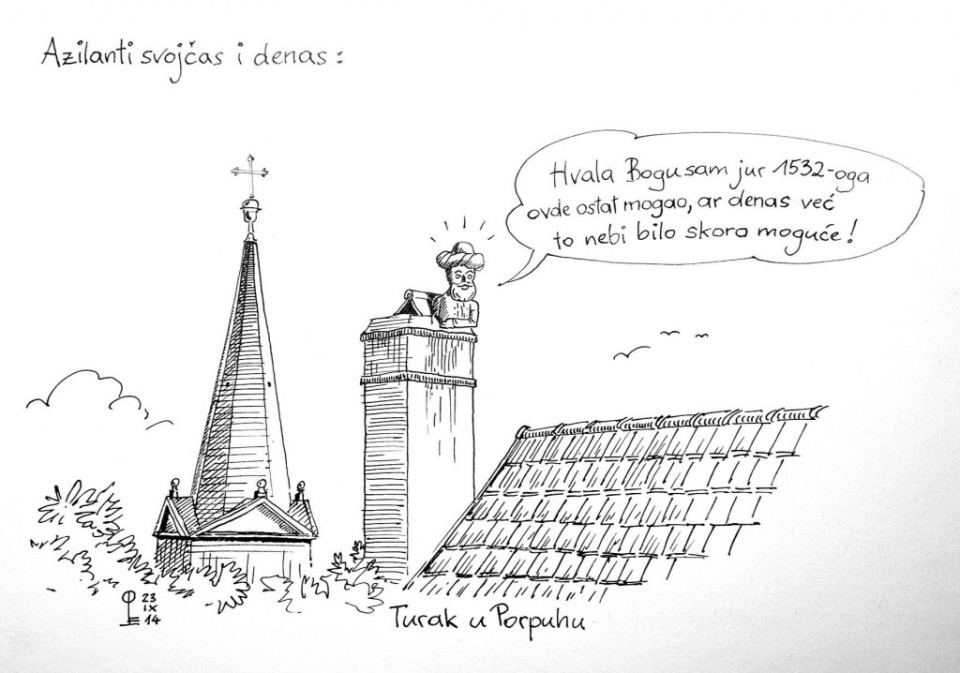 Azilanti svojčas i denas :
Hvala Bogu sam jur 1532-oga
ovde ostat mogao, ar denas već
to nebi bilo skoro moguće !
Turak u Porpuhu
23
ix
14